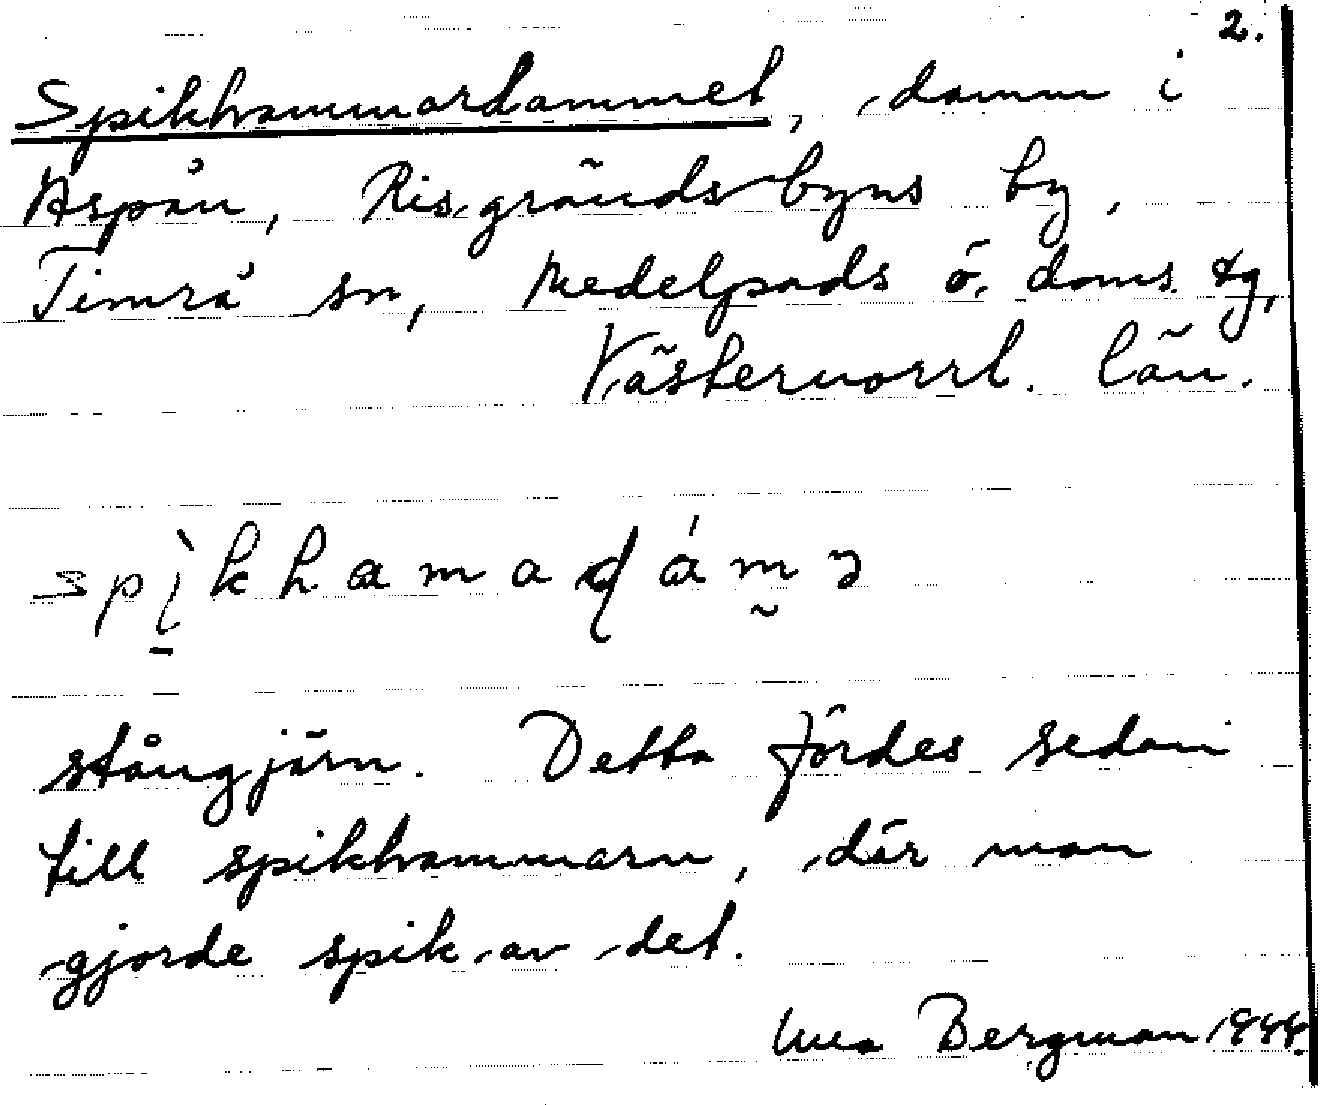 2.
Spikhammardammet, damm i
Aspån, Risgrändsbyns by,
Timrå sn, Medelpads ö. doms. tg,
Västernorrl. län.
spìkhamaɖámə
stångjärn. Detta fördes sedan
till spikhammarn, där man
gjorde spik av det.
Bergman 1944.